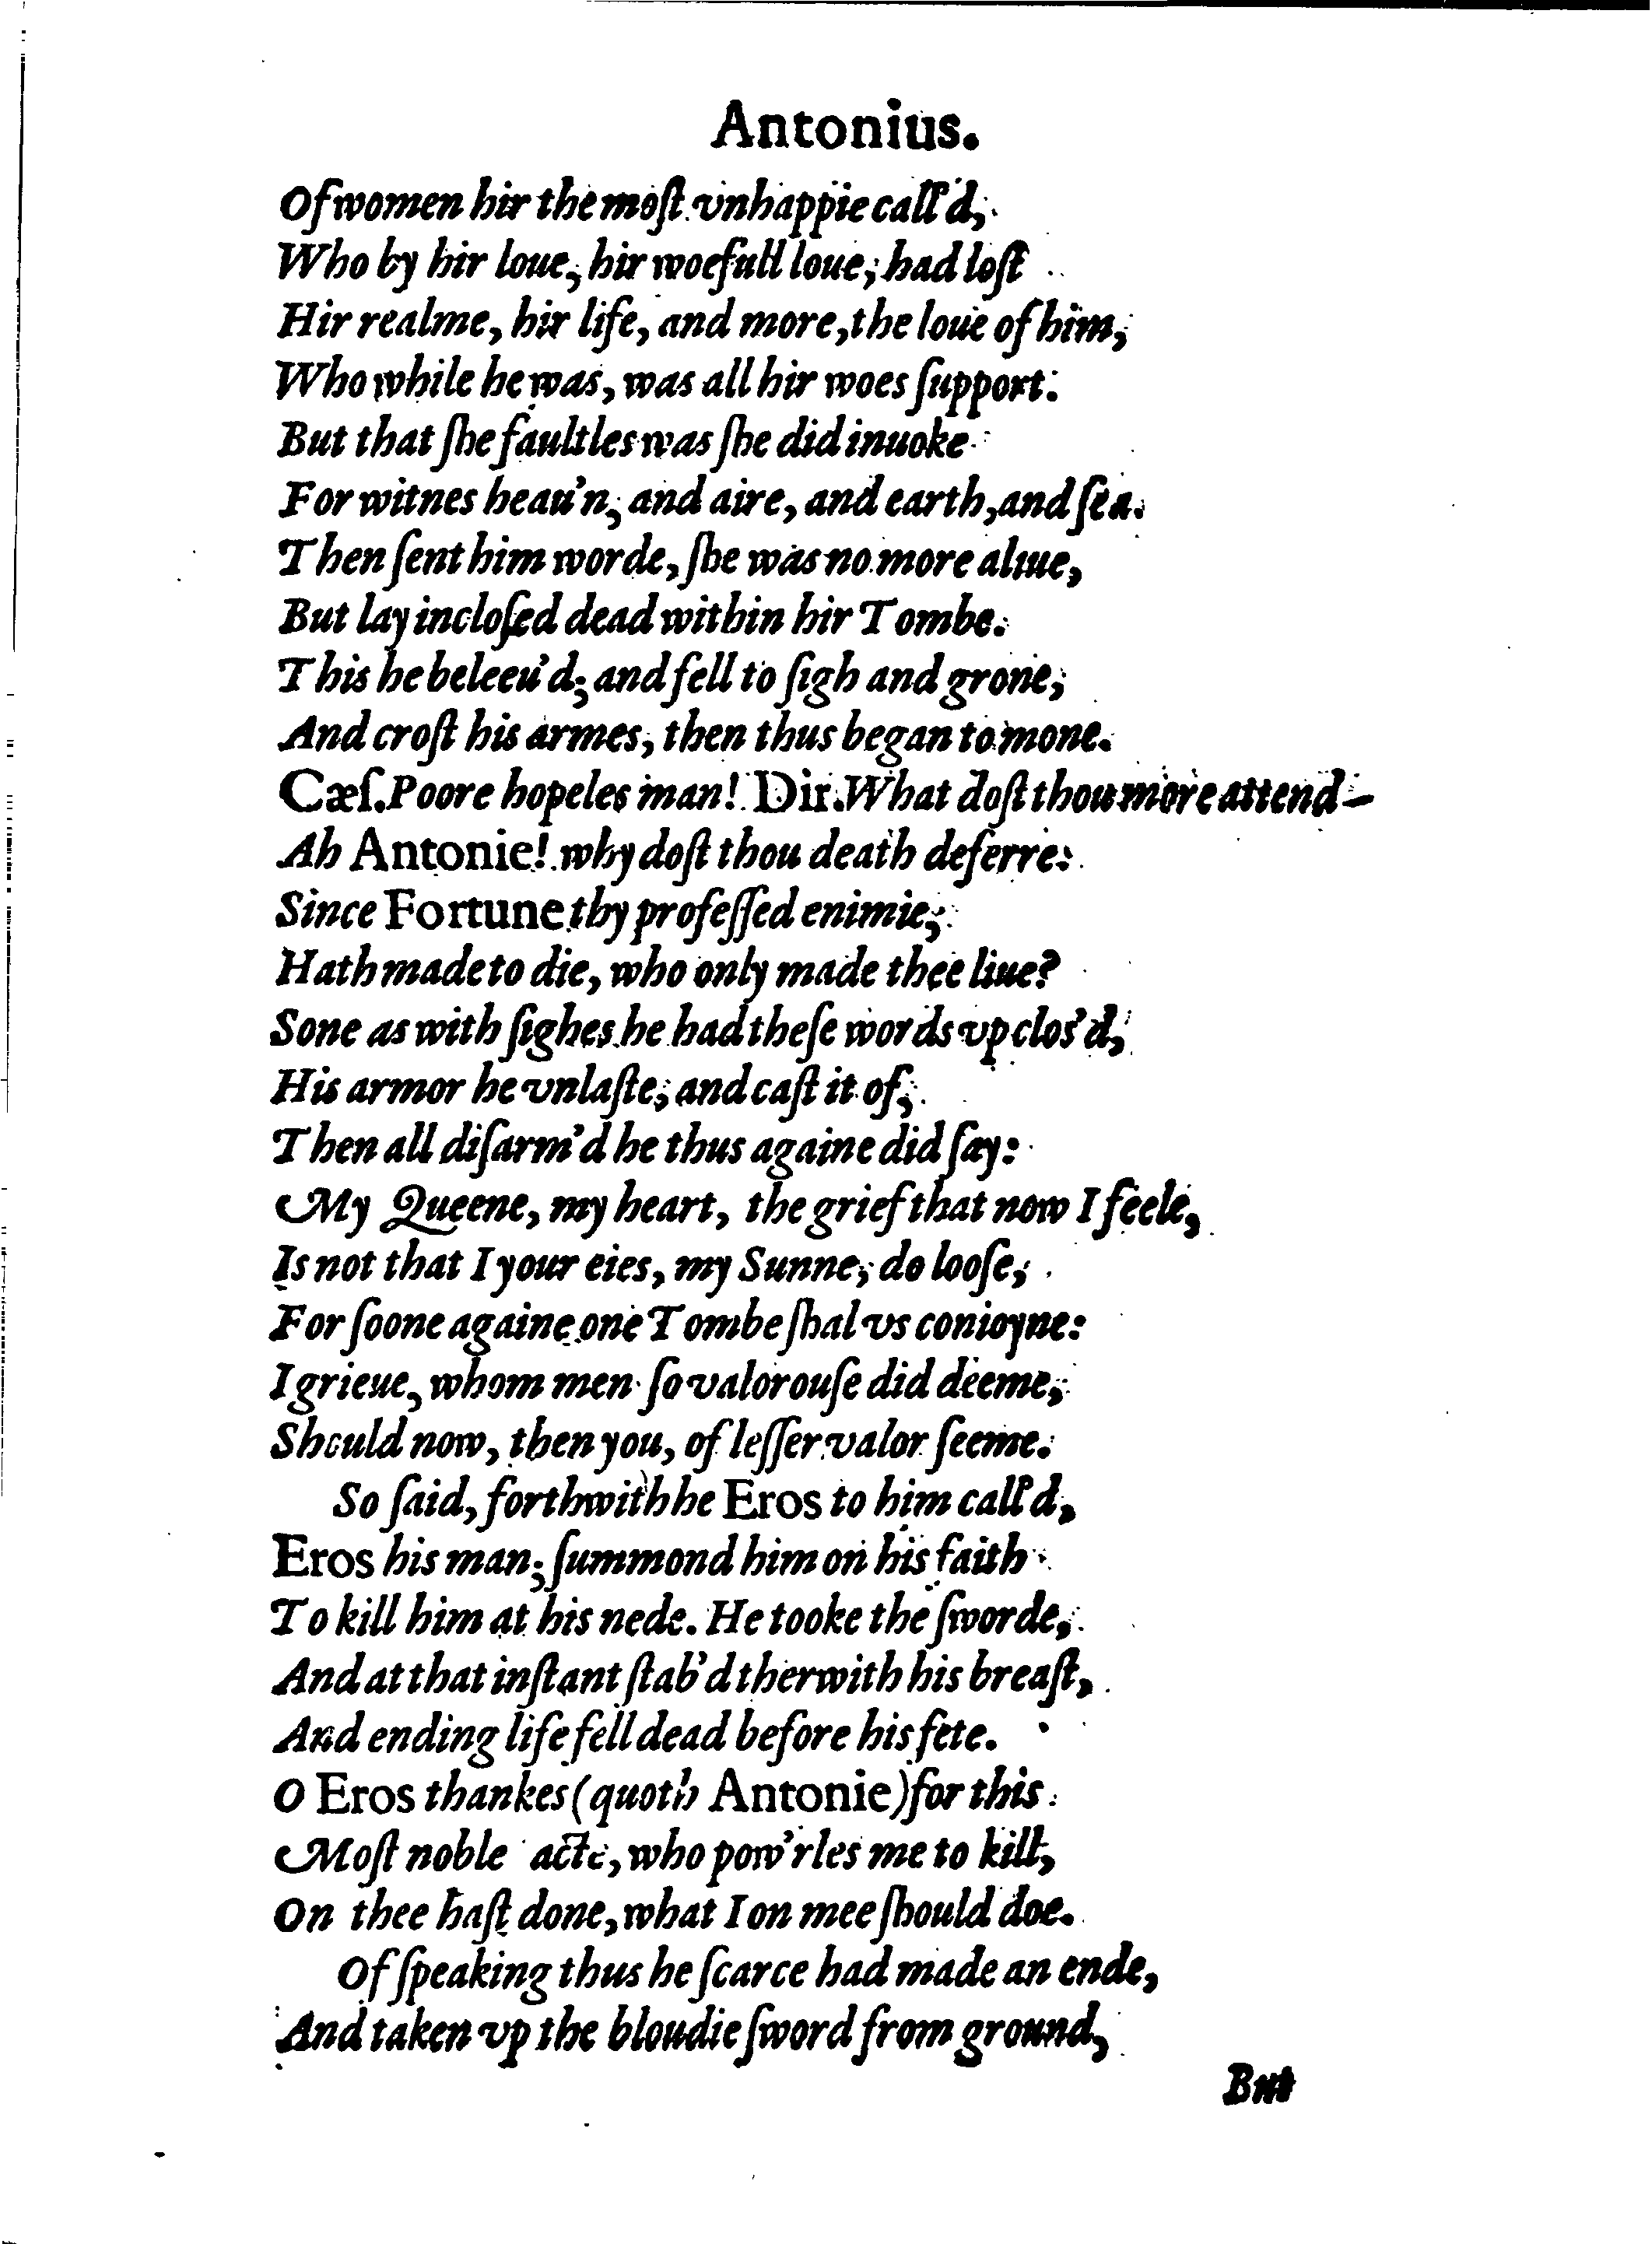 Antonius.
Of women hir the moſt vnhappie call'd,
Who by hir loue, hir woefull loue, had loſt
Hir realme, hir life, and more, the loue of him,
Who while he was, was all hir woes ſupport.
But that ſhe faultles was ſhe did inuoke
For witnes heau'n, and aire, and earth, and ſea.
Then ſent him worde, ſhe was no more aliue,
But lay incloſed dead within hir Tombe.
This he beleeu'd; and fell to ſigh and grone,
And croſt his armes, then thus began to mone.
Cæſ. Poore hopeles man! Dir. What doſt thou more attend—
Ah Antonie! why doſt thou death deferre:
Since Fortune thy profeſſed enimie,
Hath made to die, who only made thee liue?
Sone as with ſighes he had theſe words vp clos'd,
His armor he vnlaſte, and caſt it of,
Then all diſarm'd he thus againe did ſay:
My Queene, my heart, the grief that now I feele,
Is not that I your eies, my Sunne, do looſe,
For ſoone againe one Tombe ſhal vs conioyne:
I grieue, whom men ſo valorouſe did deeme,
Should now, then you, of leſſer valor ſeeme.
So ſaid, forthwith he Eros to him call'd,
Eros his man; ſummond him on his faith
To kill him at his nede. He tooke the ſworde,
And at that inſtant ſtab'd therwith his breaſt,
And ending life fell dead before his fete.
O Eros thankes (quoth Antonie) for this
Moſt noble acte, who pow'rles me to kill,
On thee haſt done, what I on mee ſhould doe.
Of ſpeaking thus he ſcarce had made an ende,
And taken vp the bloudie ſword from ground,
But